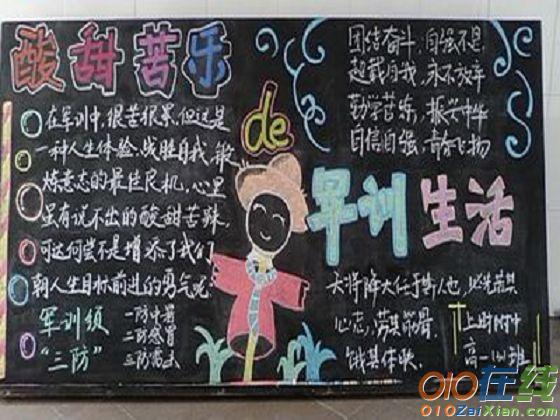 酸甜苦乐
de
军训生活
在军训中,很苦很累,但这是
一种人生体验,战胜自我,锻
炼意志的最佳良机,心里
虽有说不出的酸甜苦辣,
可这何尝不是增添了我们
朝人生目标前进的勇气呢
军训须
"三防"
一防中暑
二防感冒
三防雷击
团结奋斗,自强不息
超越自我,永不放弃
勤学苦乐,振兴中华
自信自强,青春飞扬
天将降大任于斯人也,必先苦其
心志,劳其筋骨,
饿其体肤.
上班时
高一 班
010在线
010ZaiXian.com